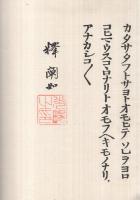 カタサタフトサヨトオモヒテソレヲヨロ
コヒマウスコヽロナリトオモフヘキモノナリ、
アナカシコ〳〵
釋闡如